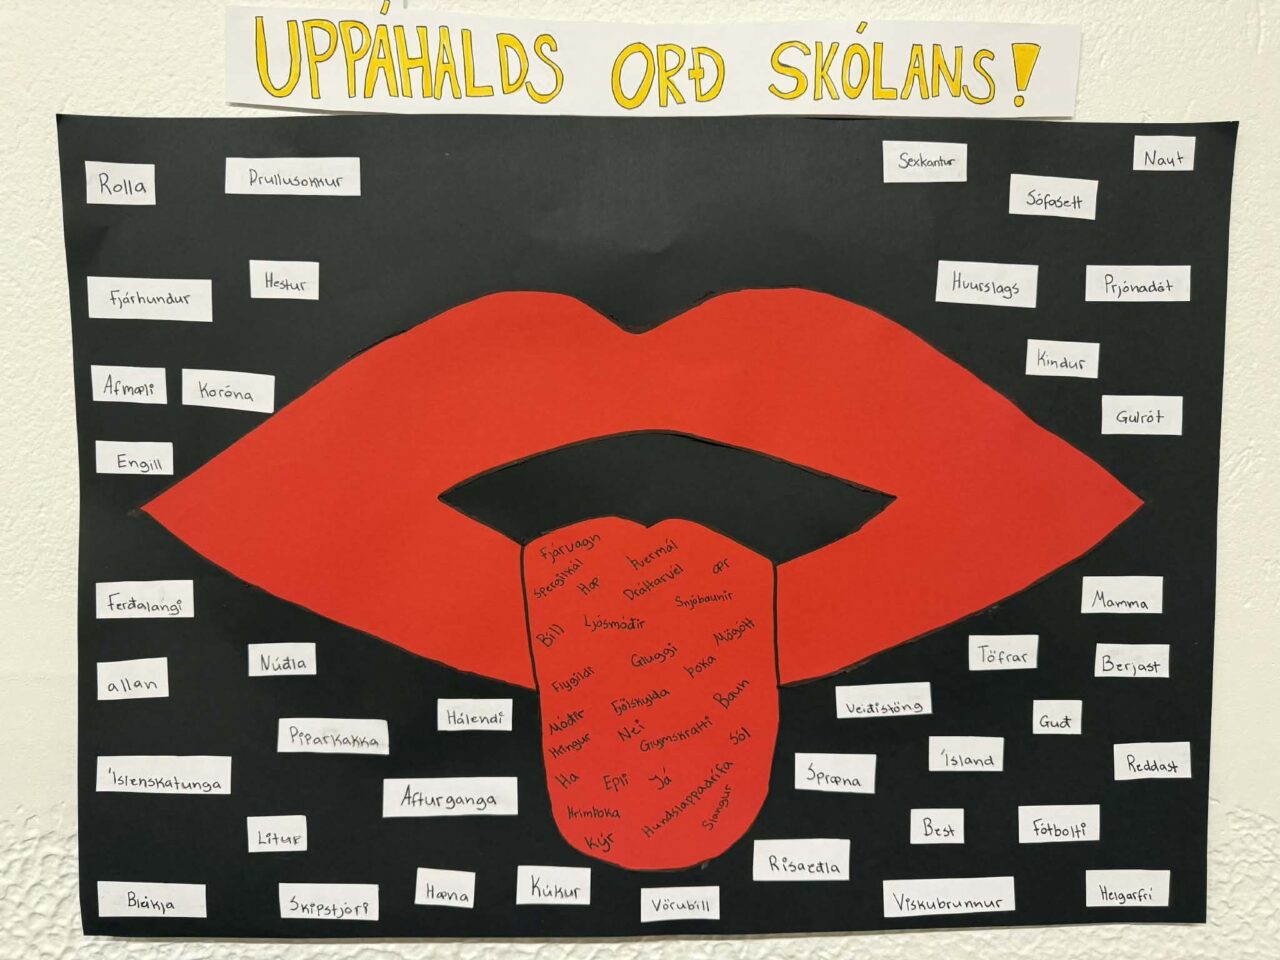 UPPÁHALDS ORÐ SKÓLANS!
Rolla
Drullusokkur
Sexkantur
Naut
Sófasett
Fjárhundur
Hestur
Huurslags
Prjónadót
Afmæli
Koróna
Kindur
Engill
Gulrót
Fjárvagn
Þvermál
Spergilkál
Hæ
Dráttarvél
ær
Snjóbaunir
Bíll
Ljósmóðir
Flygildi
Gluggi
Mögótt
Þoka
Móðir
Fjölskylda
Baun
Hringur
Nei
Glymskratti
Sól
Ha
Epli
Já
Hrímþoka
Hundslappadrífa
Slangur
Kýr
Ferðalangi
Mamma
Núðla
Töfrar
Berjast
allan
Hálendi
Veiðistöng
Guð
Piparkakka
Íslenskatunga
Afturganga
Spræna
Ísland
Reddast
Litur
Best
Fótbolti
Risaeðla
Bleikja
Skipstjóri
Hæna
Kúkur
Vörubíll
Viskubrunnur
Helgarfrí